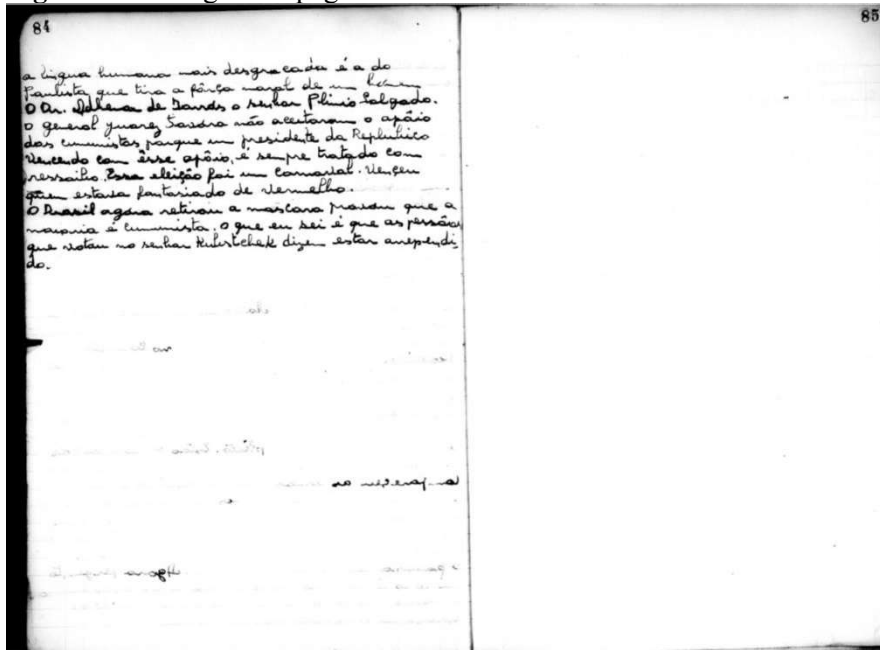 84
a lingua humana mais desgraçada é a do
Paulista que tira a fôrça moral de um homem
O Dr. Adhemar de Barros o senhor Plinio Salgado.
o general Juarez Tavora não aceitaram o apôio
dos cumunistas porque um presidente da Republica
Vencendo com êsse apôio, é sempre tratado com
Essa eleição foi um carnaval. Vençeu
quem estava fantasiado de Vermelho.
O Brasil agora retirou a mascara provou que a
maioria é cumunista. o que eu sei é que as pessôas
que votou no senhor Kubstchek dizem estar arependi-
do.
85